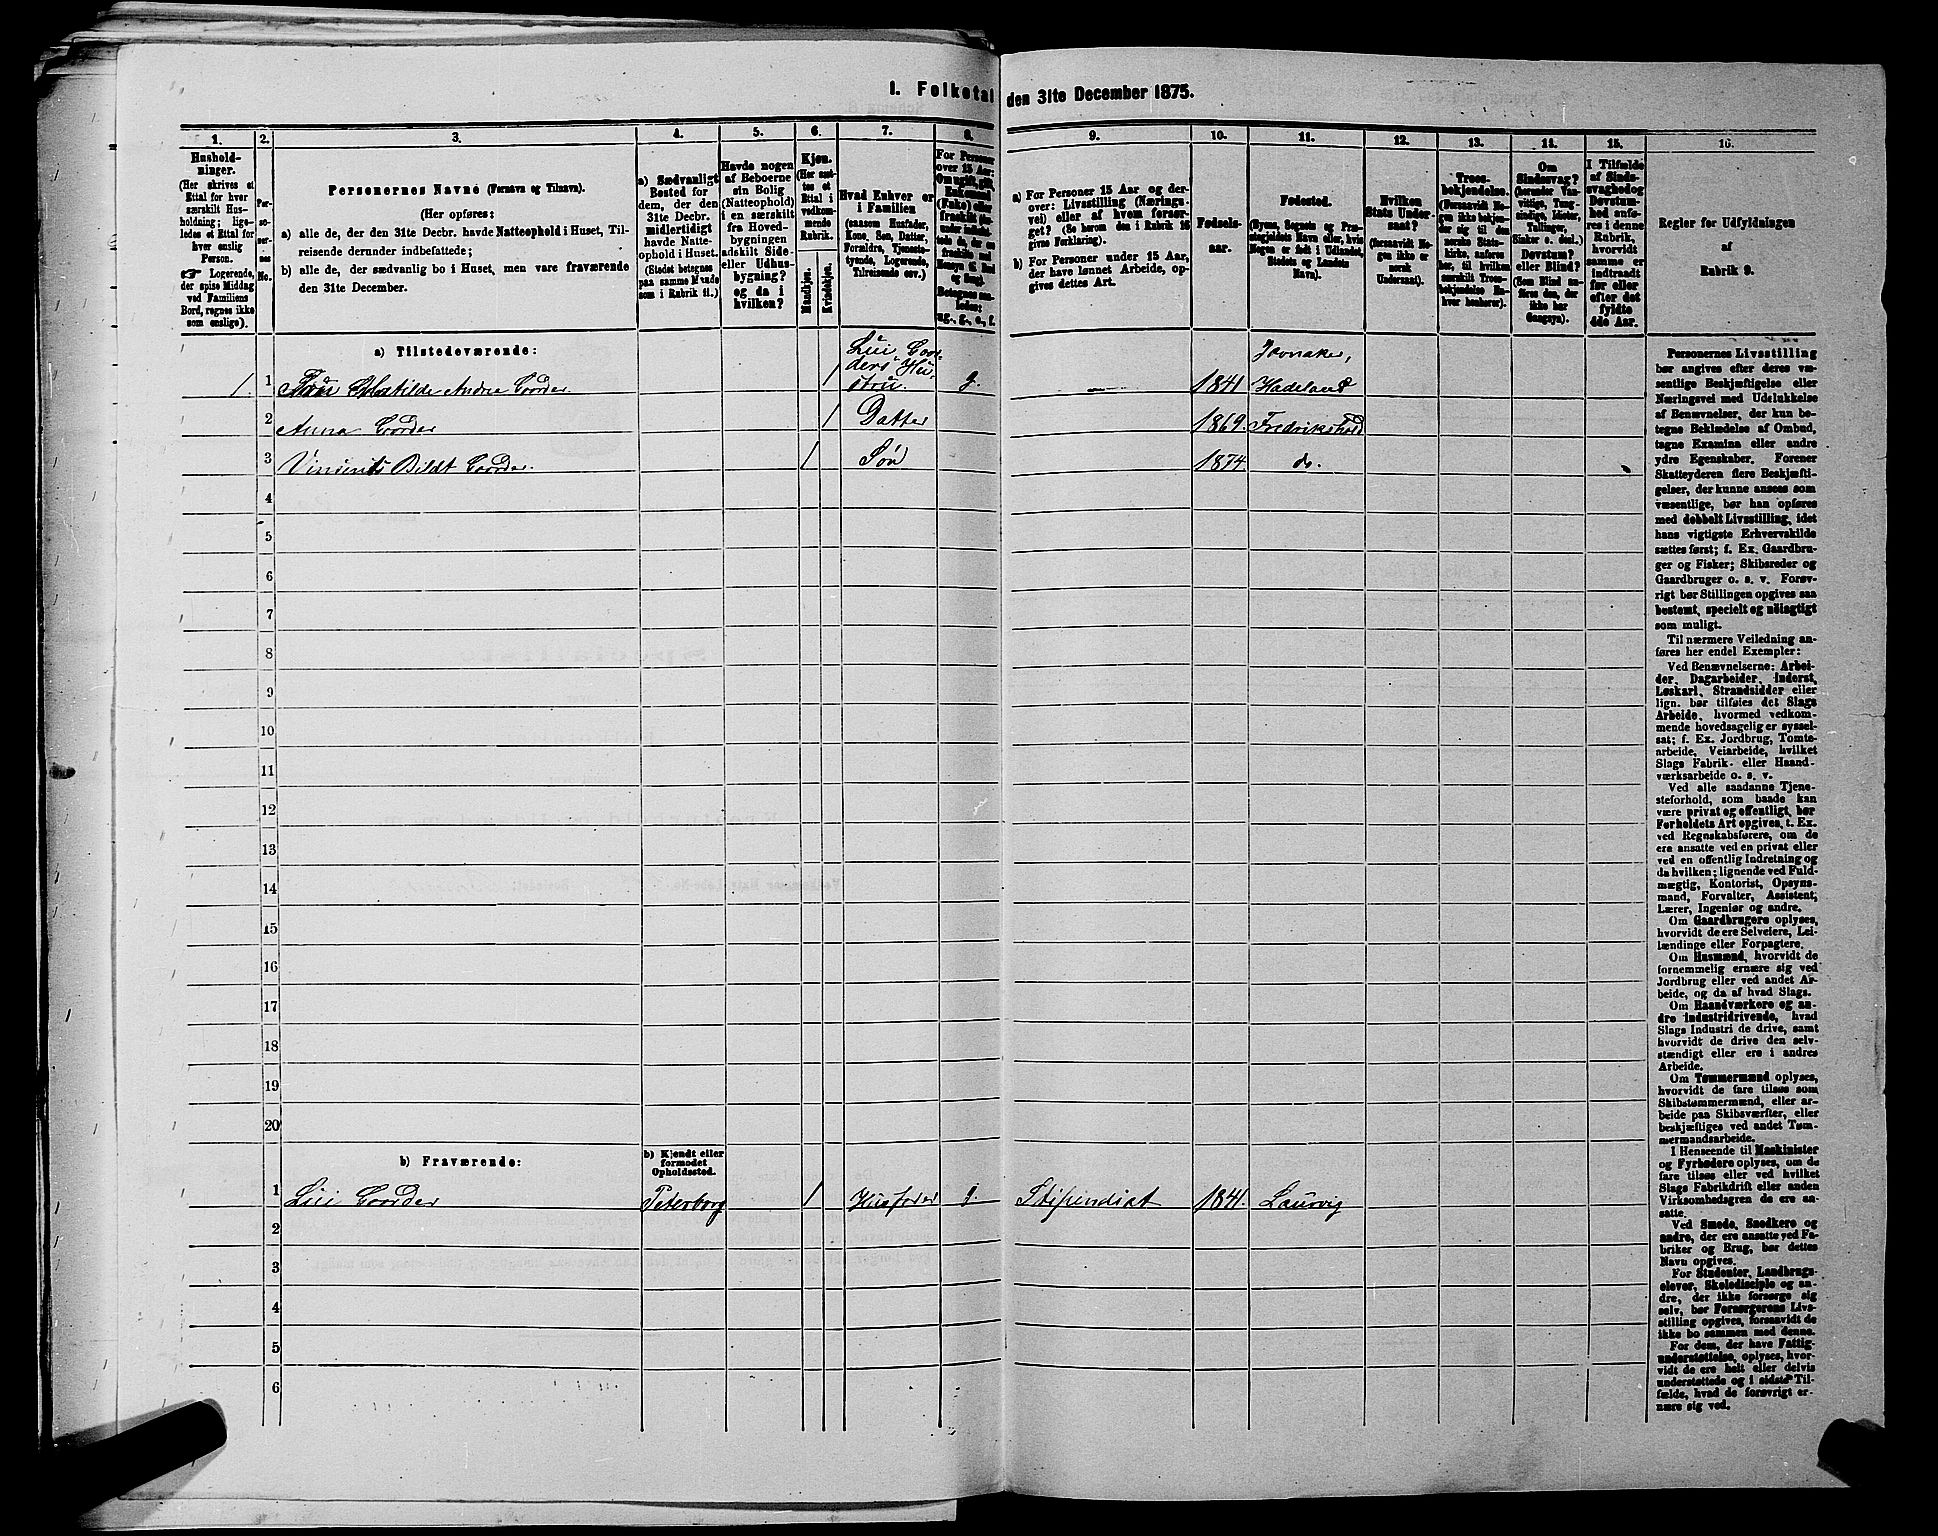 I. Folketal den 31te December 1875.
1. 2. 3. 4. 5. 6. 7. 8. 9. 10. 11. 12. 13. 14. 15. 16.
Hushold-
ninger.
(Her skrives et
Ettal for hver
særskilt Hus-
holdning; lige-
ledes et Ettal for
hver enslig
Person.
☞ Logerende,
der spise Middag
ved Familiens
Bord, regnes ikke
som enslige).
Per-
so-
ner-
nes
No.
Personernes Navne (Fornavn og Tilnavn).
(Her opføres:
a) alle de, der den 31te Decbr. havde Natteophold i Huset, Til-
reisende derunder indbefattede;
b) alle de, der sædvanlig bo i Huset, men vare fraværende
den 31te December.
a) Sædvanligt
Bosted for
dem, der den
31te Decbr.
midlertidigt
havde Natte-
ophold i Huset.
(Stedet betegnes
paa samme Maade
som i Rubrik 11.)
Havde nogen
af Beboerne
sin Bolig
(Natteophold)
i en særskilt
fra Hoved-
bygningen
adskilt Side-
eller Udhus-
bygning?
og da i
hvilken?
Kjøn.
(Her sæt-
tes et
Ettal i
vedkom-
mende
Rubrik.
Mandkjøn.
Kvindekjøn.
Hvad Enhver er
i Familien
(saasom Husfader,
Kone, Søn, Datter,
Forældre, Tjeneste-
tyende, Logerende,
Tilreisende osv.)
For Personer
over 15 Aar:
Om ugift, gift,
Enkemand
(Enke) eller
fraskilt
Betegnes saa-
ledes:
ug., g., e., f.
a) For Personer 15 Aar og der-
over: Livsstilling (Nærings-
vei) eller af hvem forsør-
get? (Se herom den i Rubrik 16
givne Forklaring).
b) For Personer under 15 Aar,
der have lønnet Arbeide, op-
gives dettes Art.
Fødsels-
aar.
Fødested.
(Byens, Sognets og Præ-
stegjeldets Navn eller, hvis
Nogen er født i Udlandet,
Stedets og Landets
Navn).
Hvilken
Stats Under-
saat?
(forsaavidt No-
gen ikke er
norsk
Undersaat).
Troes-
bekjendelse.
(Forsaavidt No-
gen ikke bekjen-
der sig til den
norske Stats-
kirke, anføres
her, til hvilken
særskilt Troes-
bekjendelse En-
hver henhører).
Om
Sindssvag?
(herunder Van-
vittige, Tung-
sindige, Idioter,
Tullinger,
Sinker o. desl.)
Døvstum?
eller Blind?
(Som Blind an-
føres den, der
ikke har
Gangsyn).
I Tilfælde
af Sinds-
svaghed og
Døvstum-
hed anfø-
res i denne
Rubrik,
hvorvidt
samme er
indtraadt
før eller
efter det
fyldte
4de Aar.
Regler for Udfyldningen
af
Rubrik 9.
a) Tilstedeværende:
1. 1 Fru Matilde Andrea Corder 1 Lui Cor-
ders Hu-
stru. g. — 1841 Jevnaker,
Hadeland
2 Anna Corder 1 Datter 1869. Fredrikshald
3 Vincents Bildt Corder. 1 Søn 1874. do.
4
5
6
7
8
9
10
11
12
13
14
15
16
17
18
19
20
b) Fraværende:
b) Kjendt eller
formodet
Opholdssted.
1 Lui Corder Peterborg 1 Husfader g. Stipendiat 1841. Laurvig
2
3
4
5
6
Personernes Livsstilling
bør angives efter deres væ-
sentlige Beskjæftigelse eller
Næringsvei med Udelukkelse
af Benævnelser, der kun be-
tegne Beklædelse af Ombud,
tagne Examina eller andre
ydre Egenskaber. Forener
Skatteyderen flere Beskjæfti-
gelser, der kunne ansees som
væsentlige, bør han opføres
med dobbelt Livsstilling, idet
hans vigtigste Erhvervskilde
sættes først; f. Ex. Gaardbru-
ger og Fisker; Skibsreder og
Gaardbruger o. s. v. Forøv-
rigt bør Stillingen opgives saa
bestemt, specielt og nøiagtigt
som muligt.
Til nærmere Veiledning an-
føres her endel Exempler:
Ved Benævnelserne: Arbei-
der, Dagarbeider, Inderst,
Løskarl, Strandsidder eller
lign. bør tilføies det Slags
Arbeide, hvormed vedkom-
mende hovedsagelig er syssel-
sat; f. Ex. Jordbrug, Tomte-
arbeide, Veiarbeide, hvilket
Slags Fabrik- eller Haand-
værksarbeide o. s. v.
Ved alle saadanne Tjene-
steforhold, som baade kan
være privat og offentligt, bør
Forholdets Art opgives, t. Ex.
ved Regnskabsførere, om de
ere ansatte ved en privat eller
ved en offentlig Indretning og
da hvilken; lignende ved Fuld-
mægtig, Kontorist, Opsyns-
mand, Forvalter, Assistent,
Lærer, Ingeniør og andre.
Om Gaardbrugere oplyses,
hvorvidt de ere Selveiere, Lei-
lændinge eller Forpagtere.
Om Husmænd, hvorvidt de
fornemmelig ernære sig ved
Jordbrug eller ved andet Ar-
beide, og da af hvad Slags.
Om Haandværkere og an-
dre industridrivende, hvad
Slags Industri de drive, samt
hvorvidt de drive den selv-
stændigt eller ere i andres
Arbeide.
Om Tømmermænd oplyses,
hvorvidt de fare tilsøs som
Skibstømmermænd, eller ar-
beide paa Skibsværfter, eller
beskjæftiges ved andet Tøm-
mermandsarbeide.
I Henseende til Maskinister
og Fyrbødere oplyses, om de
fare tilsøs eller ved hvilket
Slags Fabrikdrift eller anden
Virksomhedsgren de ere an-
satte.
Ved Smede, Snedkere og
andre, der ere ansatte ved Fa-
briker og Brug, bør dettes
Navn opgives.
For Studenter, Landbrugs-
elever, Skoledisciple og an-
dre, der ikke forsørge sig
selv, bør Forsørgerens Livs-
stilling opgives, forsaavidt de
ikke bo sammen med denne.
For dem, der have Fattig-
understøttelse, oplyses, hvor-
vidt de ere helt eller delvis
understøttede og i sidste Til-
fælde, hvad de forøvrigt er-
nære sig ved.